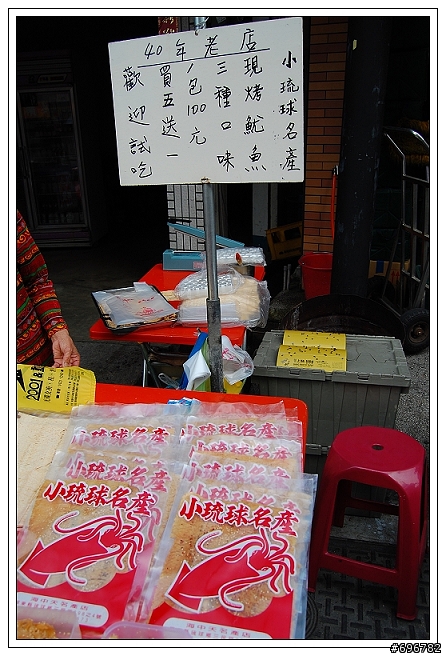 40年老店
小琉球名產
現烤魷魚
三種口味
1包100元
買五送一
歡迎試吃
2001
小琉球名產
小琉球名產
小琉球名產
小琉球名產
小琉球名產
小琉球名產
#696782